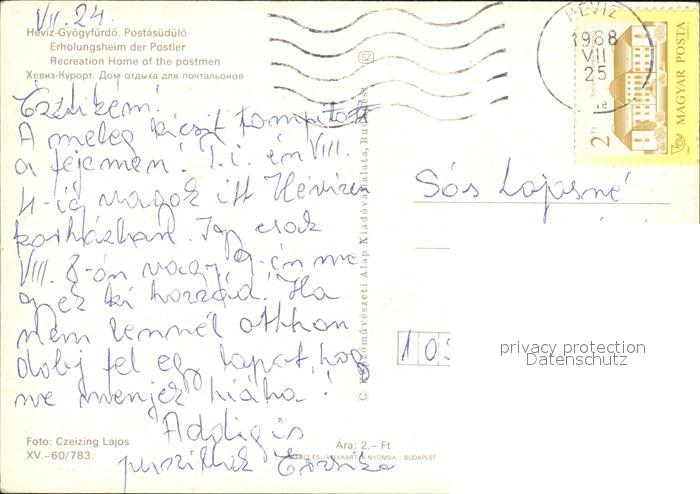 VII. 24.
Hévíz-Gyógyfürdő. Postásüdülő
Erholungsheim der Postler
Recreation Home of the postmen
Хевиз-Курорт. Дом отдыха для почтальонов
A meleg kicsit tompított
a fejemen! T.i. én VIII.
4-ig vagyok itt Hévízen
kórházban. Így csak
VIII. 8-án vagy 9-én me
gyek ki hozzád. Ha
nem lennél otthon
dobj fel egy lapot, hog
ne menjek hiába!
Addig is
puszillak Erzsike
Foto: Czeizing Lajos
XV.–60/783.
Ára: 2,– Ft
© Képzőművészeti Alap Kiadóvállalata, Budapest
HÉVÍZ
1988
VII
25
2 Ft
MAGYAR POSTA
Sós Lajosné
10
privacy protection
Datenschutz